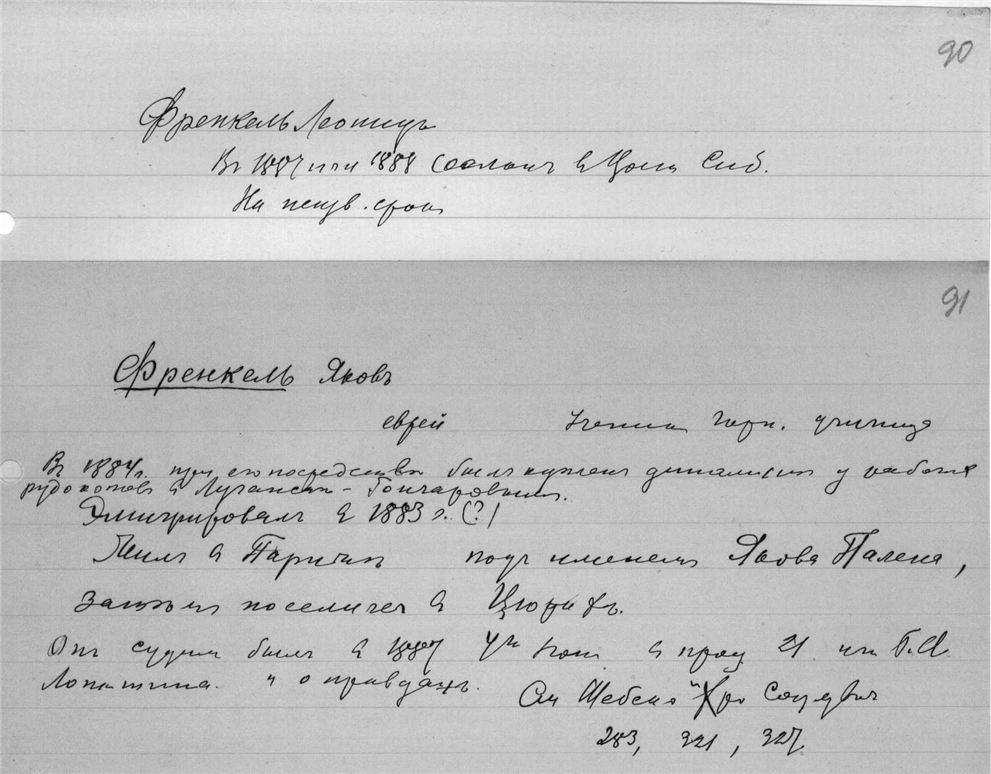 90
Френкель Леонидъ
Въ 1887 или 1888 сосланъ въ Сиб.
На неизв. срокъ
91
Френкель Яковъ
еврей Ученик горн. училища
Въ 1884 г. при его посредстве былъ купленъ динамитъ у рабочих
рудокопов в Луганске - Гончаровым.
Эмигрировалъ в 1883 г. (?)
Жилъ в Париже подъ именемъ Якова Палена,
затемъ поселился в Цюрихъ.
От судим былъ в 1887 в проц. 21 Г. А.
Лопатина. и оправданъ.
См Шебеко "Хро Соц движ
283, 321, 327